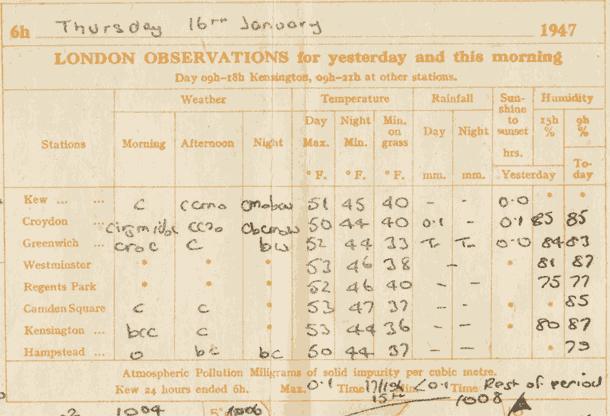 6h Thursday 16th January 1947
LONDON OBSERVATIONS for yesterday and this morning
Day 09h–18h Kensington, 09h–21h at other stations.
Weather Temperature Rainfall Sun-shine to sunset Humidity
Stations Morning Afternoon Night Day Max. Night Min. Min. on grass Day Night 15h % 9h %
° F. ° F. ° F. mm. mm. hrs. Yesterday To-day
Kew ... ... c ccmo 51 45 40 - - 0.0 * *
Croydon ... ccmo 50 44 40 0.1 - 0.1 85 85
Greenwich ... croc c bw 52 44 33 Tr Tr 0.0 84 83
Westminster * * * 53 46 38 - * 81 87
Regents Park * * * 52 46 40 - - 75 77
Camden Square c c * 53 47 37 - - * * 85
Kensington ... bcc c * 53 44 36 - - * 80 87
Hampstead ... o bc bc 50 44 37 - - * 79
Atmospheric Pollution Milligrams of solid impurity per cubic metre.
Kew 24 hours ended 6h. Max. 0.1 Time 15th Min. <0.1 Time Rest of period
1004 1006 1008